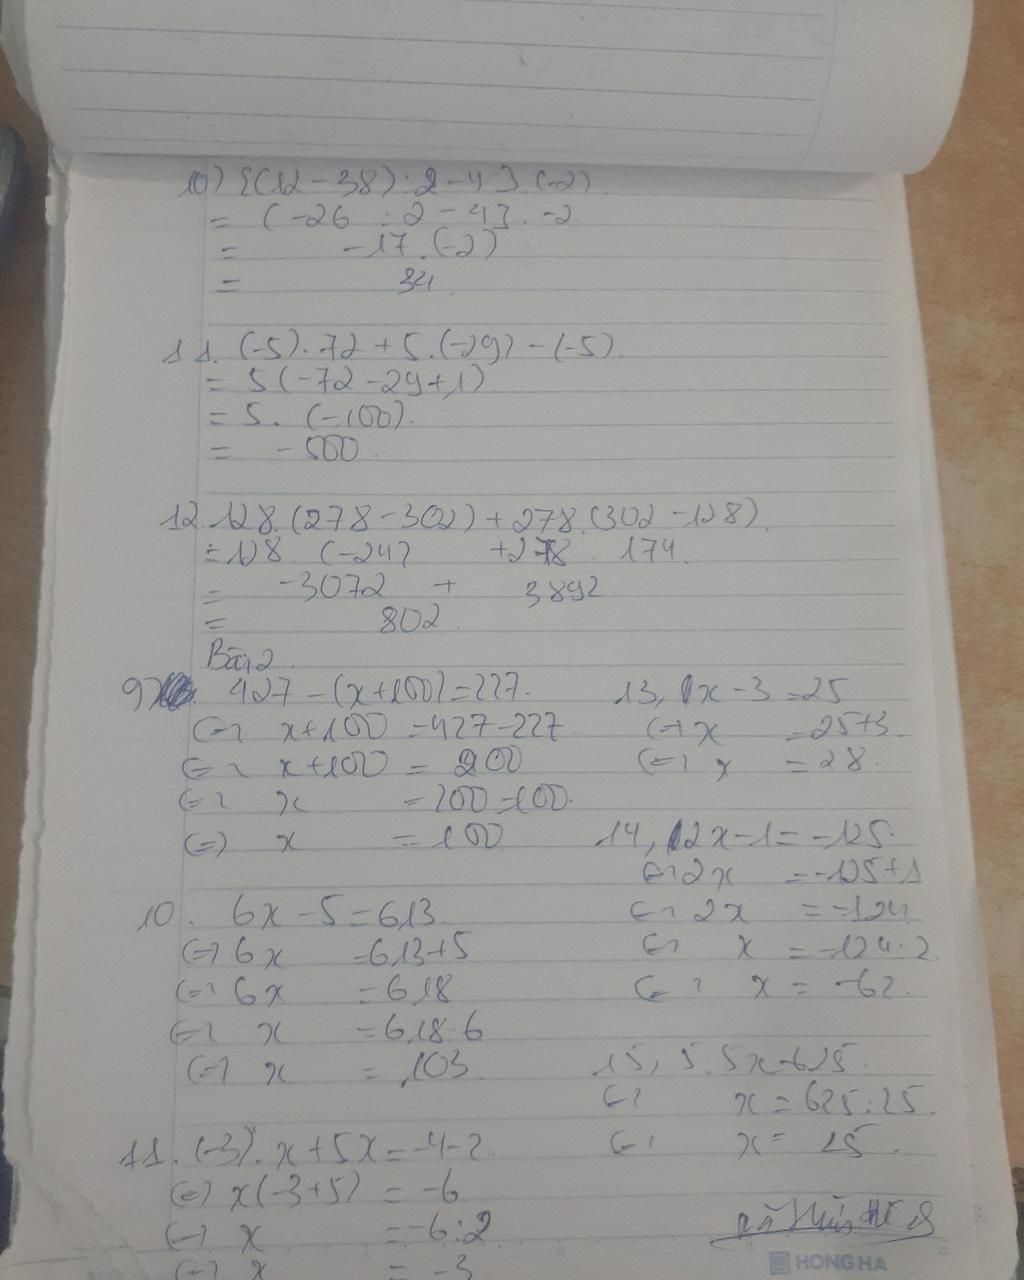 10) {(12-38):2-4}.(-2)
= (-26 : 2 - 4}. -2
= -17.(-2)
= 34
11. (-5).72+5.(-29)-(-5).
= 5(-72-29+1)
= 5. (-100).
= -500.
12.128.(278-302)+278.(302-128).
= 128 (-24) +278. 174.
= -3072 + 3892
= 802.
Bài 2.
9) 427-(x+100)=227.
(=) x+100 =427-227
(=) x+100 = 200
(=) x =200-100.
(=) x =100
10. 6x-5=613.
(=) 6x =613+5
(=) 6x =618
(=) x =618:6
(=) x = 103.
11. (-3).x+5x=-4-2.
(=) x(-3+5) = -6
(=) x =-6:2
(=) x = -3
13, x-3=25
(=) x =25+3.
(=) x =28.
14, 2x-1=-125.
(=) 2x =-125+1
(=) 2x =-124.
(=) x =-124:2.
(=) x = -62.
15, 5.5x=625.
(=) x=625:25.
(=) x= 25.
HONG HA